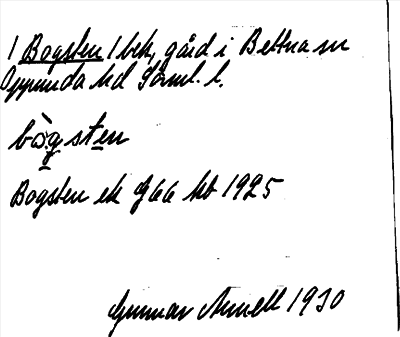 1 Bogsten 1 bek, gård i Bettna sn
Oppunda hd Söml. l.
bògsten
Bogsten ek G66 kb 1925
Gunnar Arnell 1930